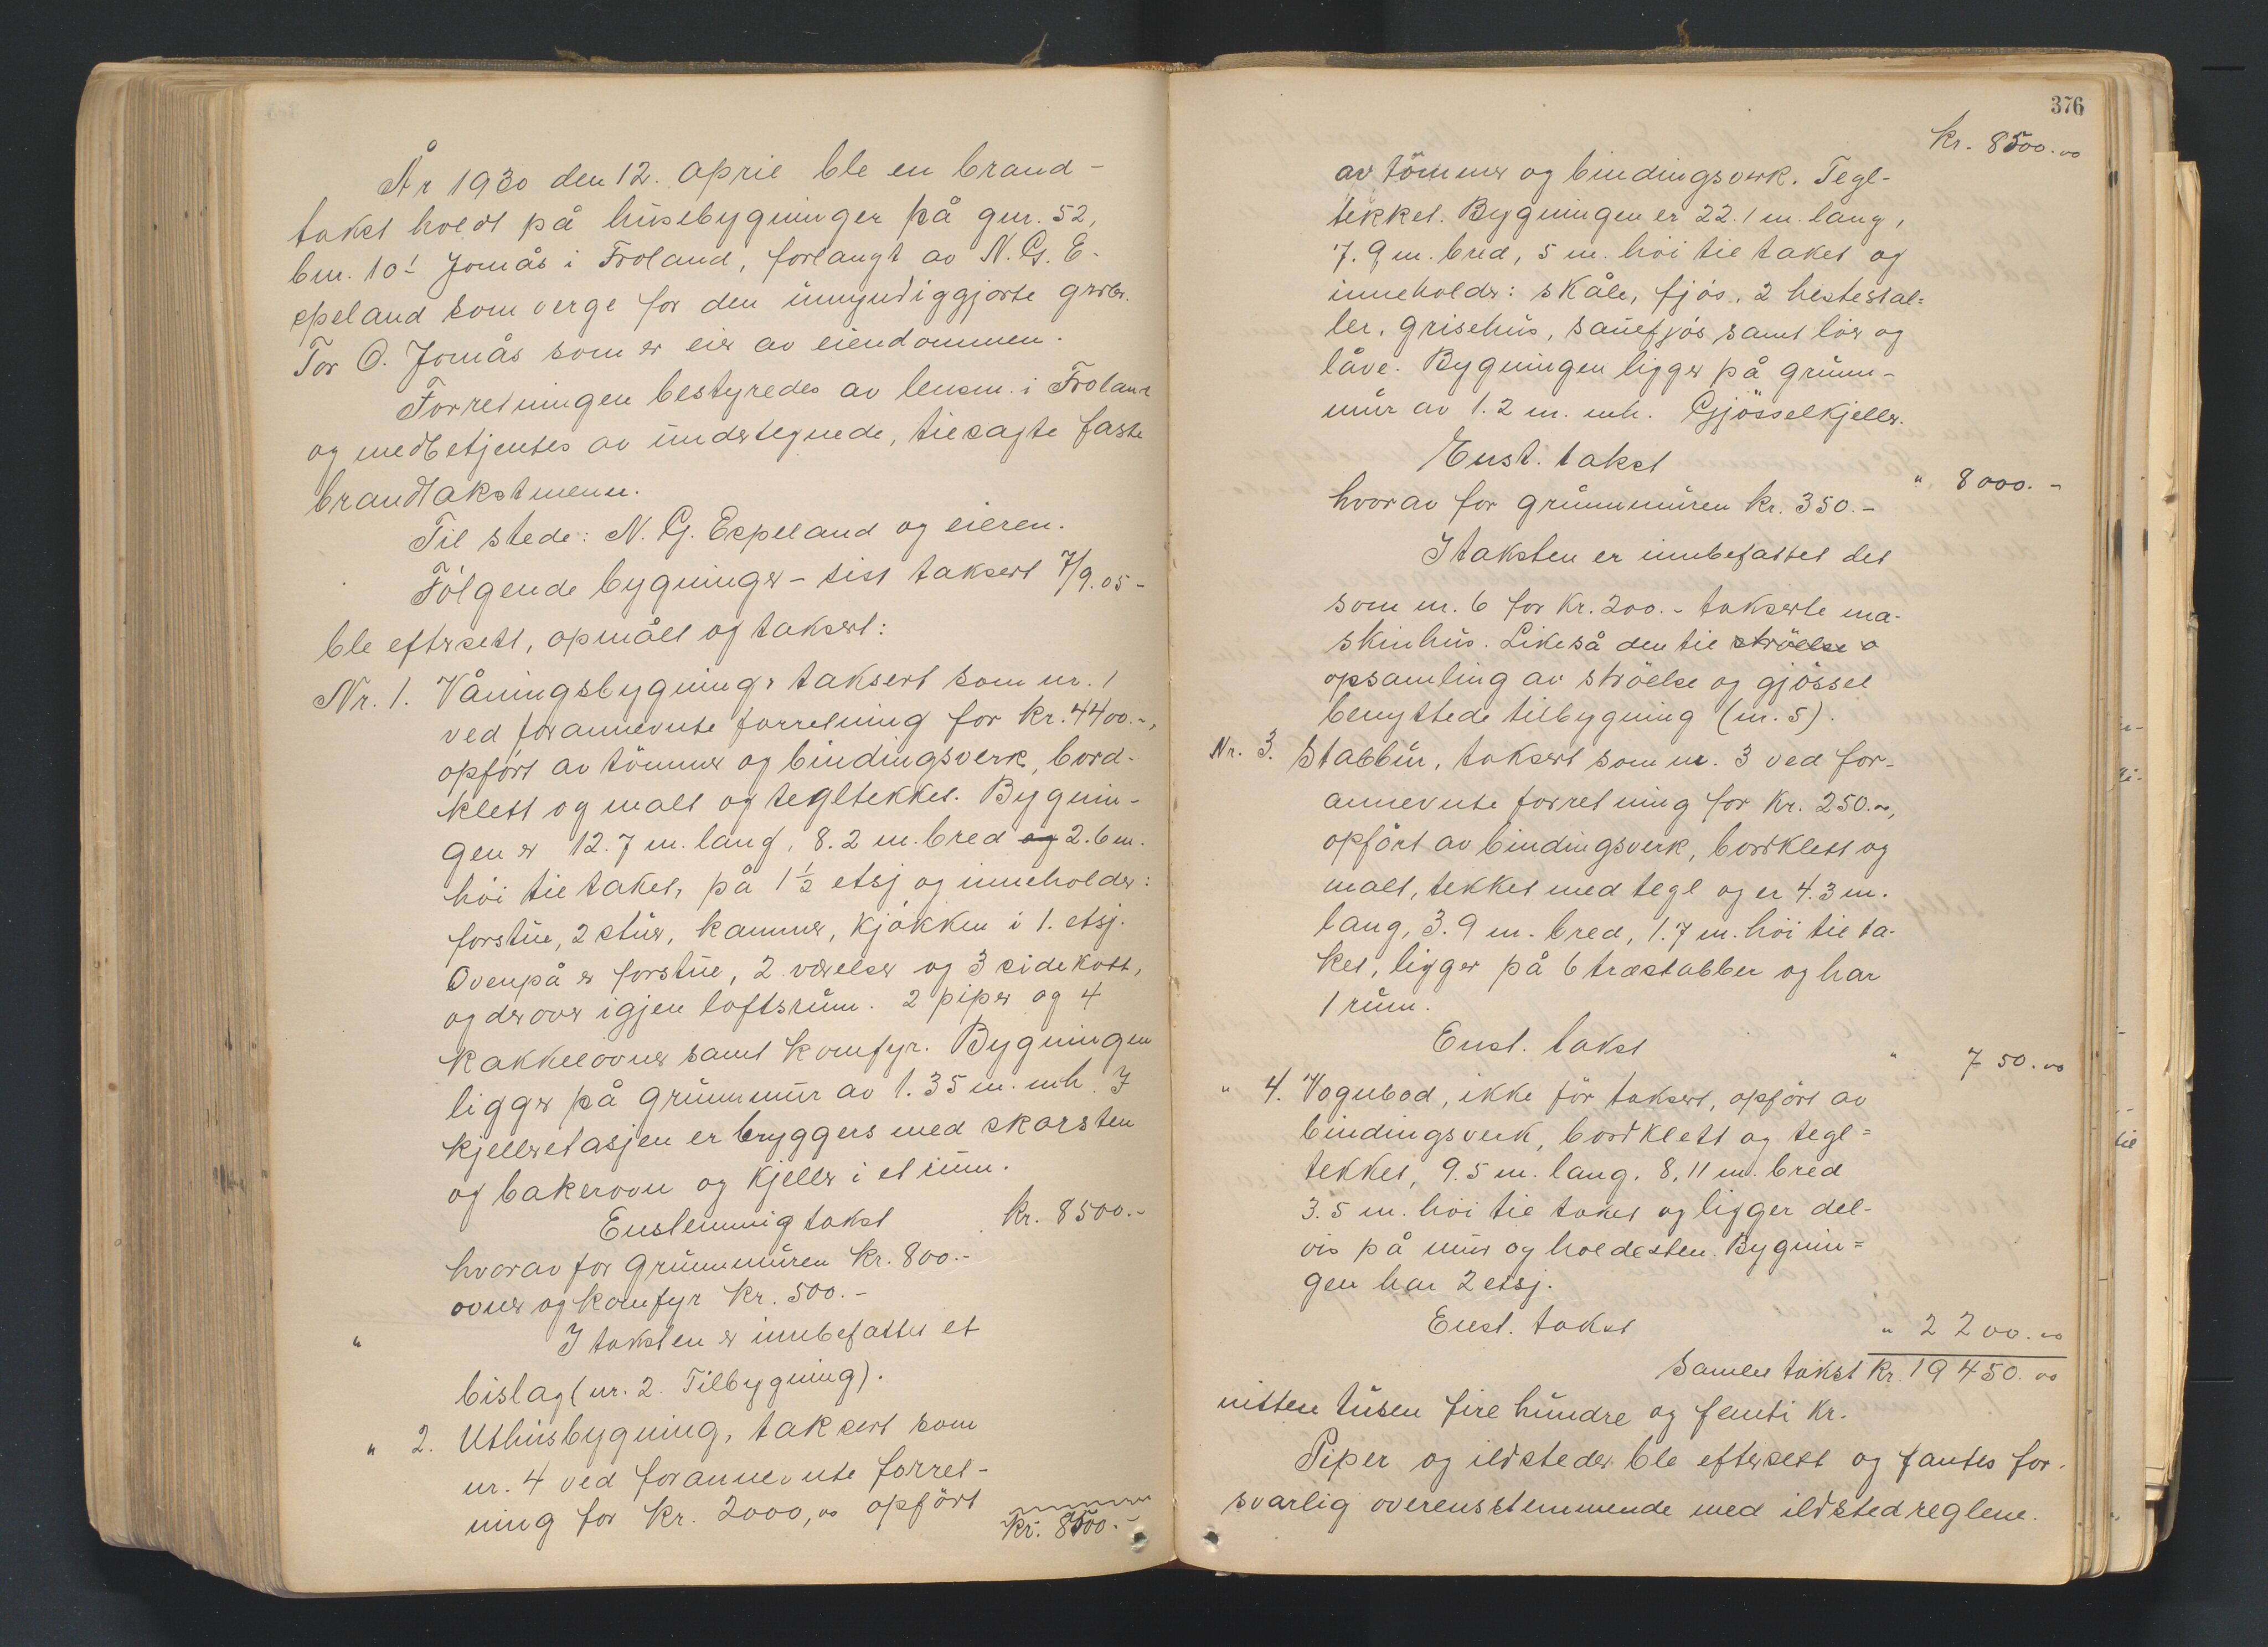 År 1930 den 12. april ble en brand-
takst holdt på husebygninger på gnr. 52,
bnr. 10 Jomås i Froland, forlangt av N. G. E-
speland som verge for den umyndiggjorte grbr.
Tor O. Jomås som er eier av eiendommen.
Forretningen bestyredes av lensm. i Froland
og medbetjentes av undertegnede, tilsagte faste
brandtakstmenn.
Til stede: N. G. Espeland og eieren.
Følgende bygninger - sist taksert 7/9.05 -
ble eftersett, opmålt og taksert:
Nr. 1. Våningsbygning, taksert som nr. 1
ved forannevnte forretning for kr. 4400.-,
opført av tømmer og bindingsverk, bord-
klett og malt og tegltekket. Bygnin-
gen er 12.7 m. lang, 8.2 m. bred og 2.6 m.
høi til taket, på 1 1/2 etsj og inneholder:
forstue, 2 stuer, kammer, kjøkken i 1. etsj.
Ovenpå er forstue, 2 værelser og 3 sidekott,
og derover igjen loftsrum. 2 piper og 4
kakkelovner samt komfyr. Bygningen
ligger på grunnmur av 1.35 m. mh. I
kjelleretasjen er bryggers med skorsten
og bakerovn og kjeller i et rum.
Enstemmig takst kr. 8500.-
hvorav for grunnmuren kr. 800.-
ovner og komfyr kr. 500.-
" I taksten er innbefattet et
bislag (nr. 2. Tilbygning).
" 2. Uthusbygning, taksert som
nr. 4 ved forannevnte forret-
ning for kr. 2000,00 opført
kr. 8500.-
376
kr. 8500.00
av tømmer og bindingsverk. Tegl-
tekket. Bygningen er 22.1 m. lang,
7.9 m. bred, 5 m. høi til taket og
inneholder: skåle, fjøs, 2 hestestal=
ler, grisehus, sauefjøs samt løer og
låve. Bygningen ligger på grunn-
mur av 1.2 m. mh. Gjødselkjeller.
Enst. takst " 8000.-
hvorav for grunnmuren kr. 350.-
I taksten er innbefattet det
som nr. 6 for kr. 200.- takserte ma-
skinhus. Likeså den til strøelse o
opsamling av strøelse og gjødsel
benyttede tilbygning (nr. 5).
Nr. 3. Stabbur, taksert som nr. 3 ved for-
annevnte forretning for kr. 250.-,
opført av bindingsverk, bordklett og
malt, tekket med tegl og er 4.3 m.
lang, 3.9 m. bred, 1.7 m. høi til ta-
ket, ligger på 6 træstabber og har
1 rum.
Enst. takst " 750.00
" 4. Vognbod, ikke før taksert, opført av
bindingsverk, bordklett og tegl=
tekket, 9.5 m. lang, 8,11 m. bred
3.5 m. høi til taket og ligger del-
vis på mur og holdesten. Bygnin=
gen har 2 etsj.
Enst. takst " 2200.00
Samlet takst kr. 19450.00
nitten tusen fire hundre og femti kr.
Piper og ildsteder ble eftersett og fantes for-
svarlig overensstemmende med ildstedreglene.